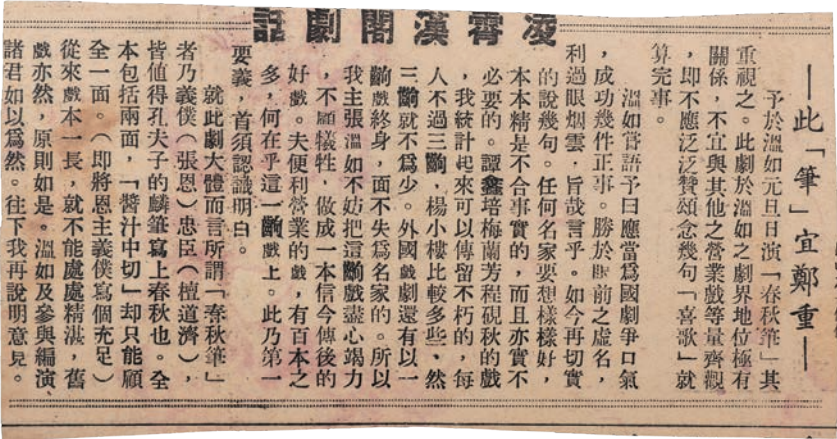 凌霄漢閣劇話
—此「筆」宜鄭重—
予於溫如元旦日演「春秋筆」其
重視之。此劇於溫如之劇界地位極有
關係，不宜與其他之營業戲等量齊觀
，即不應泛泛贊頌念幾句「喜歌」就
算完事。
溫如嘗語予曰應當爲國劇爭口氣
，成功幾件正事。勝於眼前之虛名，
利過眼烟雲，旨哉言乎。如今再切實
的說幾句。任何名家要想樣樣好，
本本精是不合事實的，而且亦實不
必要的。譚鑫培梅蘭芳程硯秋的戲
，我統計起來可以傳留不朽的，每
人不過三齣，楊小樓比較多些、然
三齣就不爲少。外國戲劇還有以一
齣戲終身，面不失爲名家的。所以
我主張溫如不妨把這齣戲盡心竭力
，不顧犧牲，做成一本信今傳後的
好戲。夫便利營業的戲，有百本之
多，何在乎這一齣戲上。此乃第一
要義，首須認識明白。
就此劇大體而言所謂「春秋筆」
者乃義僕（張恩）忠臣（檀道濟），
皆値得孔夫子的麟筆寫上春秋也。全
本包括兩面，「醬汁中切」却只能顧
全一面。（即將恩主義僕寫個充足）
從來戲本一長，就不能處處精湛，舊
戲亦然，原則如是。溫如及參與編演、
諸君如以爲然。往下我再說明意見。